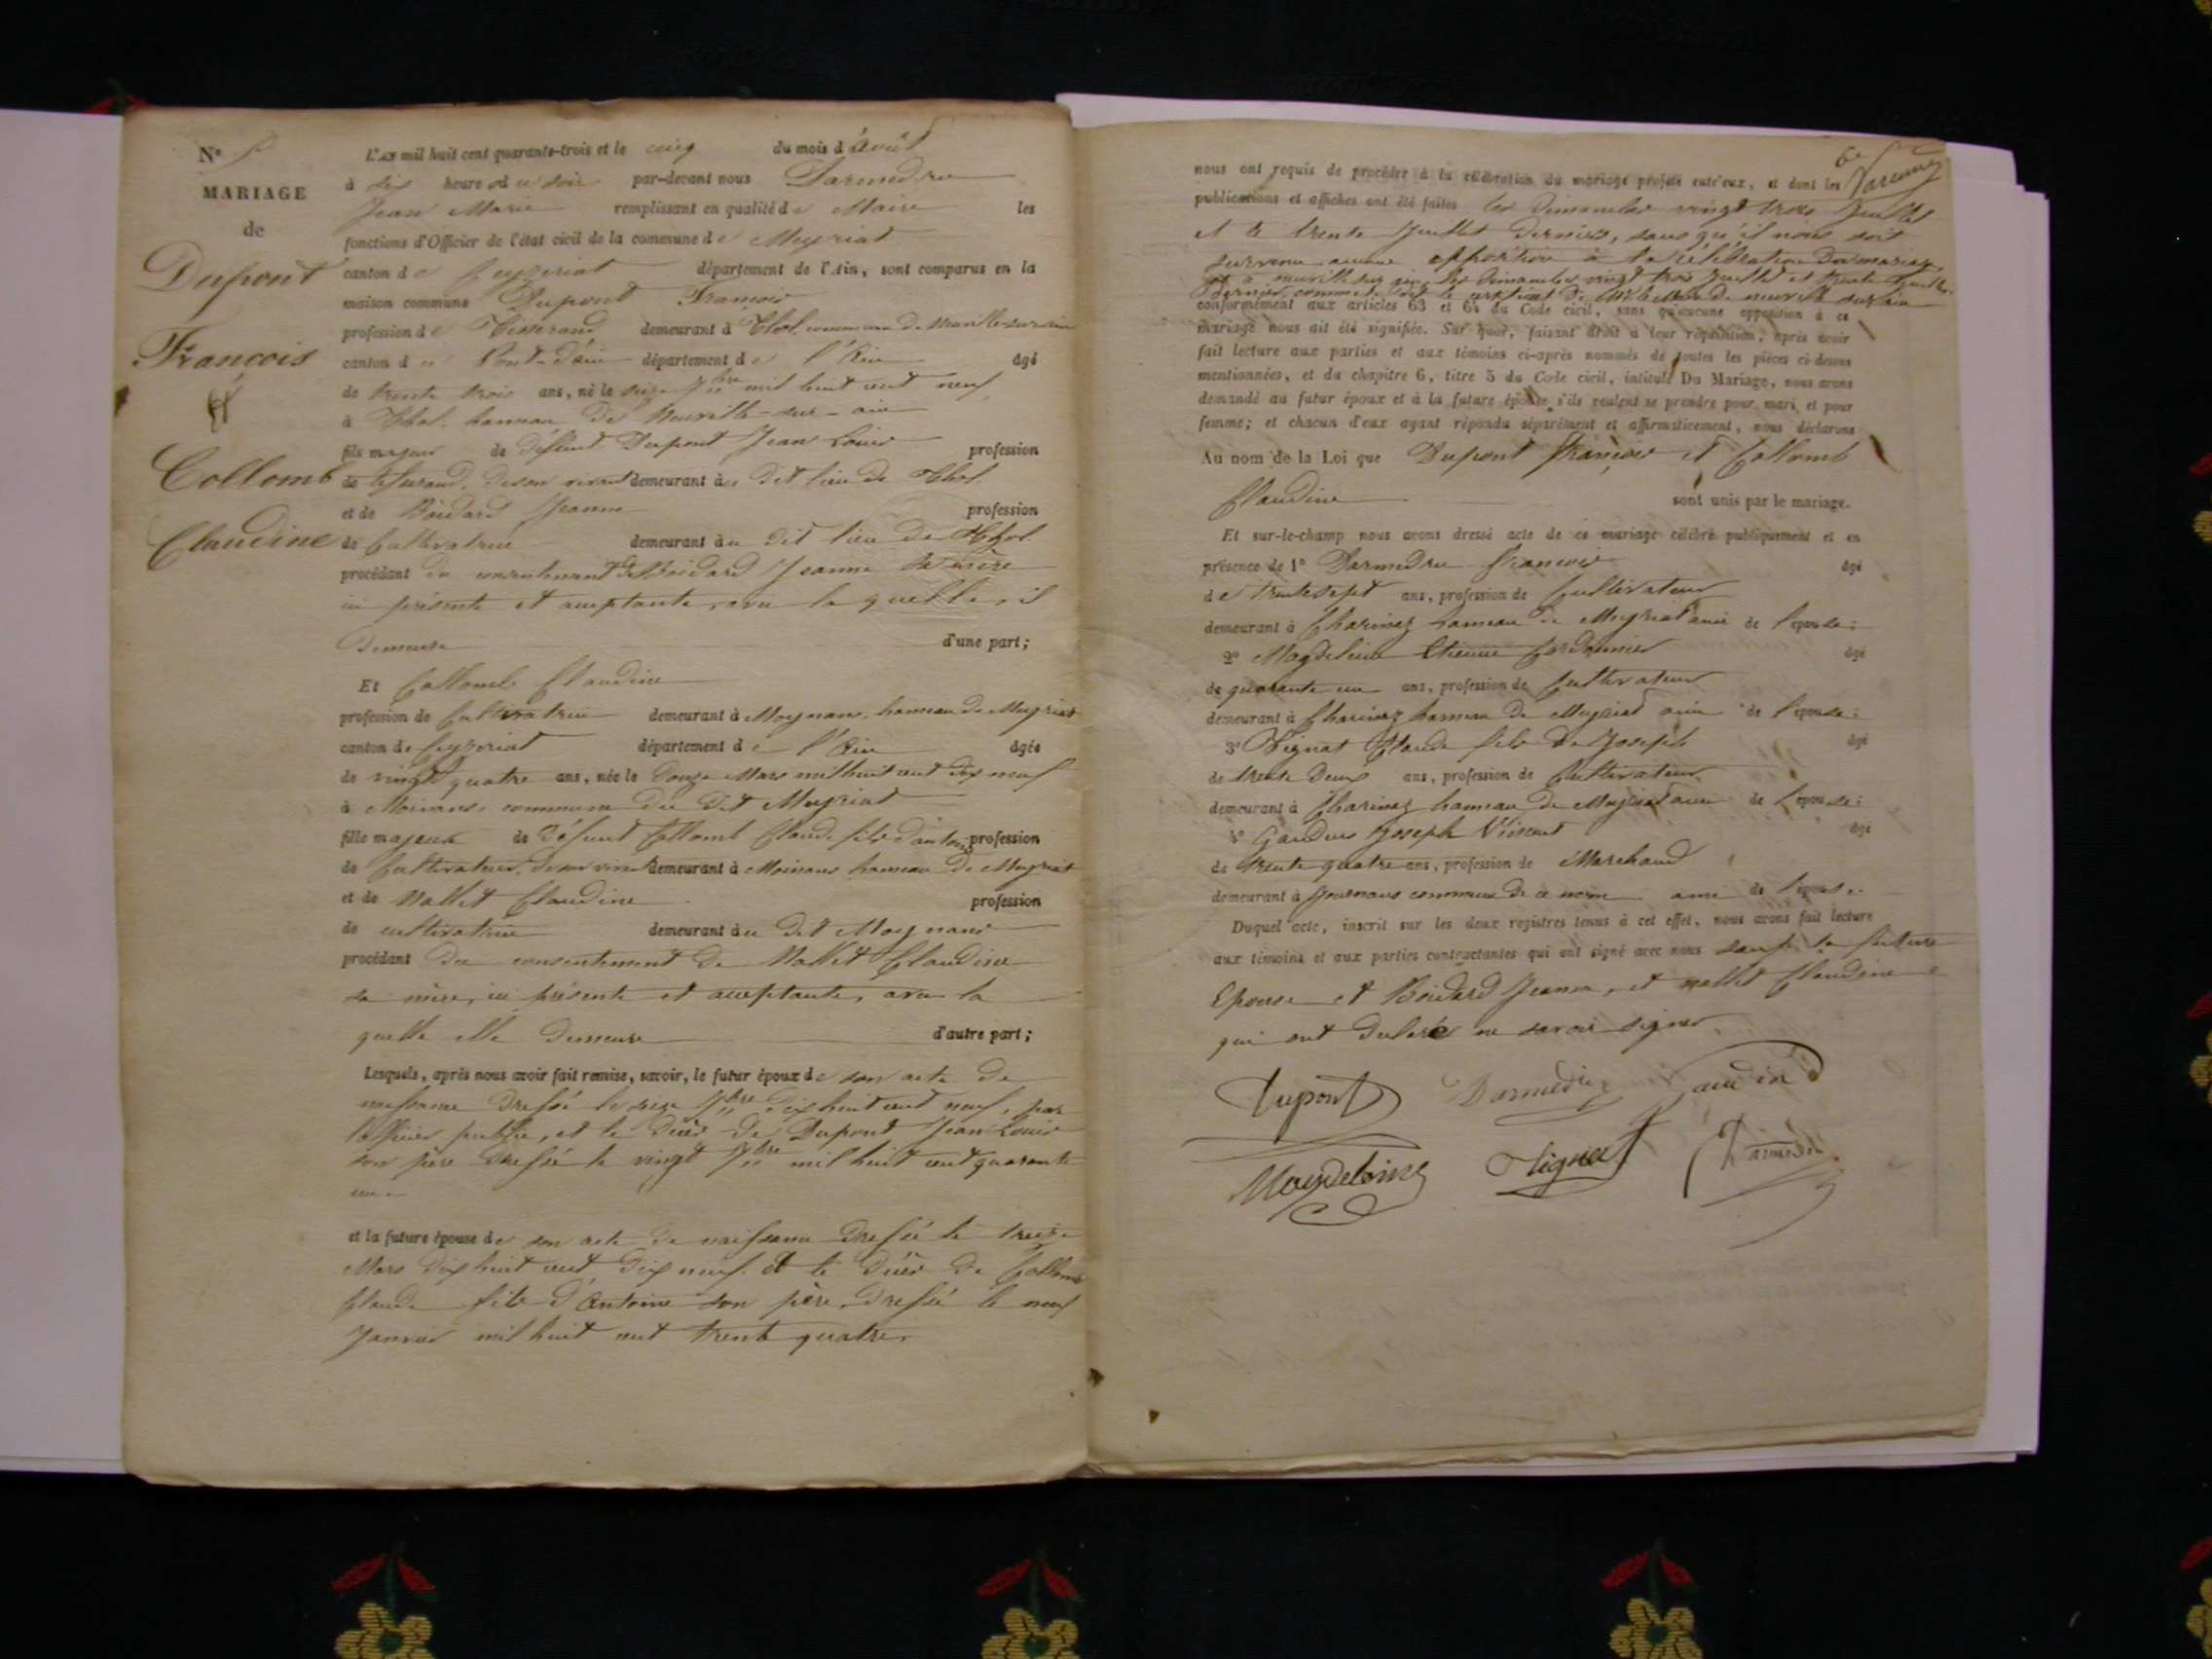 N° 5
MARIAGE
de
Dupont
François
et
Collomb
Claudine
L'AN mil huit cent quarante-trois et le cinq du mois d'Août
à six heures du soir par-devant nous Darmedru
Jean Marie remplissant en qualité de Maire les
fonctions d'Officier de l'état civil de la commune de Meyriat
canton de Ceyzeriat département de l'Ain, sont comparus en la
maison commune Dupont François
profession de Tisserand demeurant à Thol, commune de Neuville-sur-ain
canton de Pont-d'ain département de l'Ain âgé
de trente trois ans, né le seize 7bre mil huit cent neuf
à Thol, hameau de Neuville-sur-ain
fils majeur de deffunt Dupont Jean Louis profession
de tisserand, de son vivant demeurant au dit lieu de Thol
et de Boidard Jeanne profession
de Cultivatrice demeurant au dit lieu de Thol
procédant du consentement de Boidard Jeanne sa mère
ici présente et acceptante, avec la quelle, il
demeure d'une part;
Et Collomb Claudine
profession de Cultivatrice demeurant à Moynans, hameau de Meyriat
canton de Ceyzeriat département de l'Ain âgée
de vingt quatre ans, née le douze Mars mil huit cent dix neuf
à Moinans, commune du dit Meyriat
fille majeure de défunt Collomb Claude fils d'antoine profession
de Cultivateur, de son vivant demeurant à Moinans hameau de Meyriat
et de Mallet Claudine profession
de cultivatrice demeurant au dit Moynans
procédant du consentement de Mallet Claudine
sa mère, ici présente et acceptante, avec la
quelle elle demeure d'autre part;
Lesquels, après nous avoir fait remise, savoir, le futur époux de son acte de
naissance dressé le seize 7bre dix huit cent neuf, par
l'officier public, et le décès de Dupont Jean Louis
son père dressé le vingt 7bre mil huit cent quarante
un
et la future épouse de son acte de naissance dressé le treize
Mars dix huit cent dix neuf. et le décès de Collomb
Claude fils d'Antoine son père, dressé le neuf
Janvier mil huit cent trente quatre
6e
nous ont requis de procéder à la célébration du mariage projeté entr'eux, et dont les
publications et affiches ont été faites les dimanches vingt trois Juillet
et le trente Juillet derniers, sans qu'il nous soit
survenu aucune opposition à la célébration du mariage
et à neuville sur ain les dimanches vingt trois juillet et trente Juillet
dernier, comme le dit le certificat de Mr le Maire de neuville sur ain
conformément aux articles 63 et 64 du Code civil, sans qu'aucune opposition à ce
mariage nous ait été signifiée. Sur quoi, faisant droit à leur réquisition, après avoir
fait lecture aux parties et aux témoins ci-après nommés de toutes les pièces ci-dessus
mentionnées, et du chapitre 6, titre 5 du Code civil, intitulé Du Mariage, nous avons
demandé au futur époux et à la future épouse s'ils veulent se prendre pour mari et pour
femme; et chacun d'eux ayant répondu séparément et affirmativement, nous déclarons
Au nom de la Loi que Dupont François et Collomb
Claudine sont unis par le mariage.
Et sur-le-champ nous avons dressé acte de ce mariage célébré publiquement et en
présence de 1° Darmedru François âgé
de trente sept ans, profession de Cultivateur
demeurant à Charinaz hameau de Meyriat ami de l'épouse;
2° Magdeleine Etienne Cordonnier âgé
de quarante un ans, profession de Cultivateur
demeurant à Charinaz hameau de Meyriat ami de l'épouse;
3° Tignat Claude fils de Joseph âgé
de trente deux ans, profession de Cultivateur
demeurant à Charinaz hameau de Meyriat ami de l'épouse;
4° Joseph Vincent âgé
de trente quatre ans, profession de Marchand
demeurant à Journans commune de ce nom ami de l'épouse.
Duquel acte, inscrit sur les deux registres tenus à cet effet, nous avons fait lecture
aux témoins et aux parties contractantes qui ont signé avec nous sauf la future
Epouse et Boidard Jeanne, et mallet Claudine
qui ont déclaré ne savoir signer
Dupont Darmedru
Magdeleine Tignat Darmedru